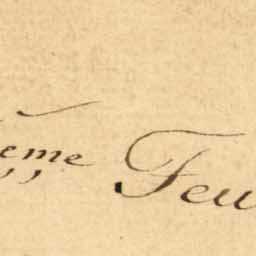 eme Feu